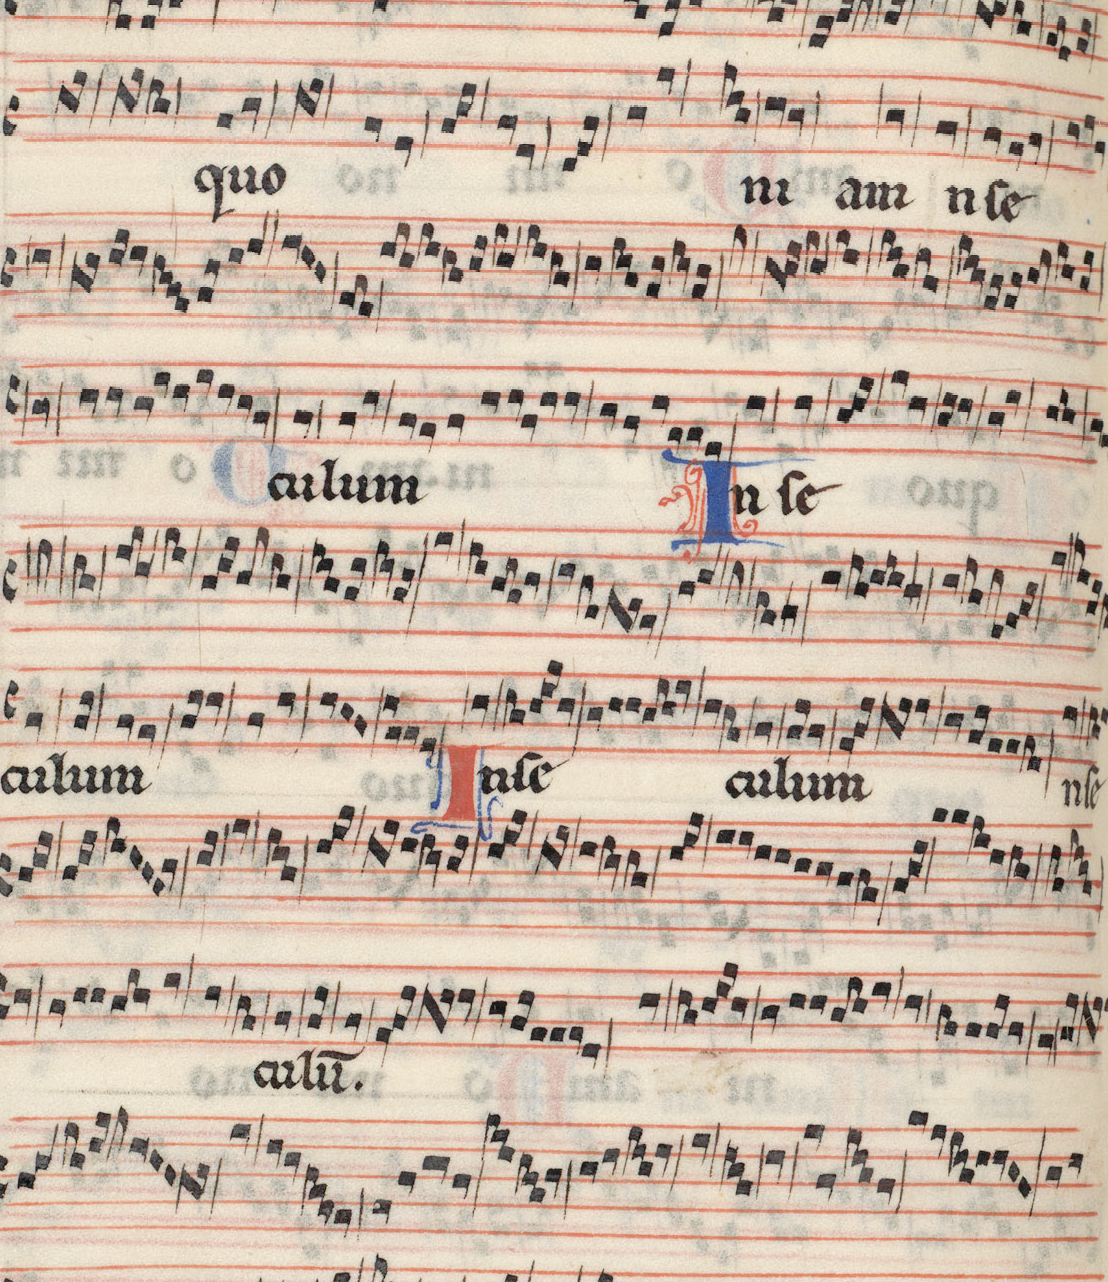 quo ni am n se
culum In se
culum Inse culum nse
culū.